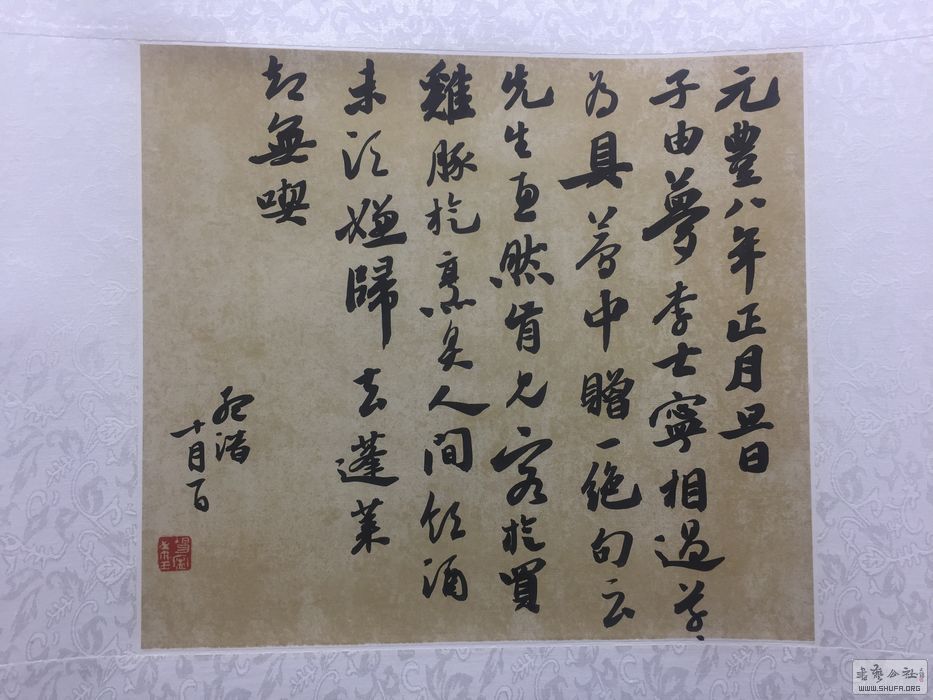 元豐八年正月旦日
子由夢李士寧相過草草
為具夢中贈一絕句云
先生惠然肯見客旋買
雞豚旋烹炙人間飲酒
未須嫌歸去蓬萊
却無喫
十月一日
WWW.SHUFA.ORG